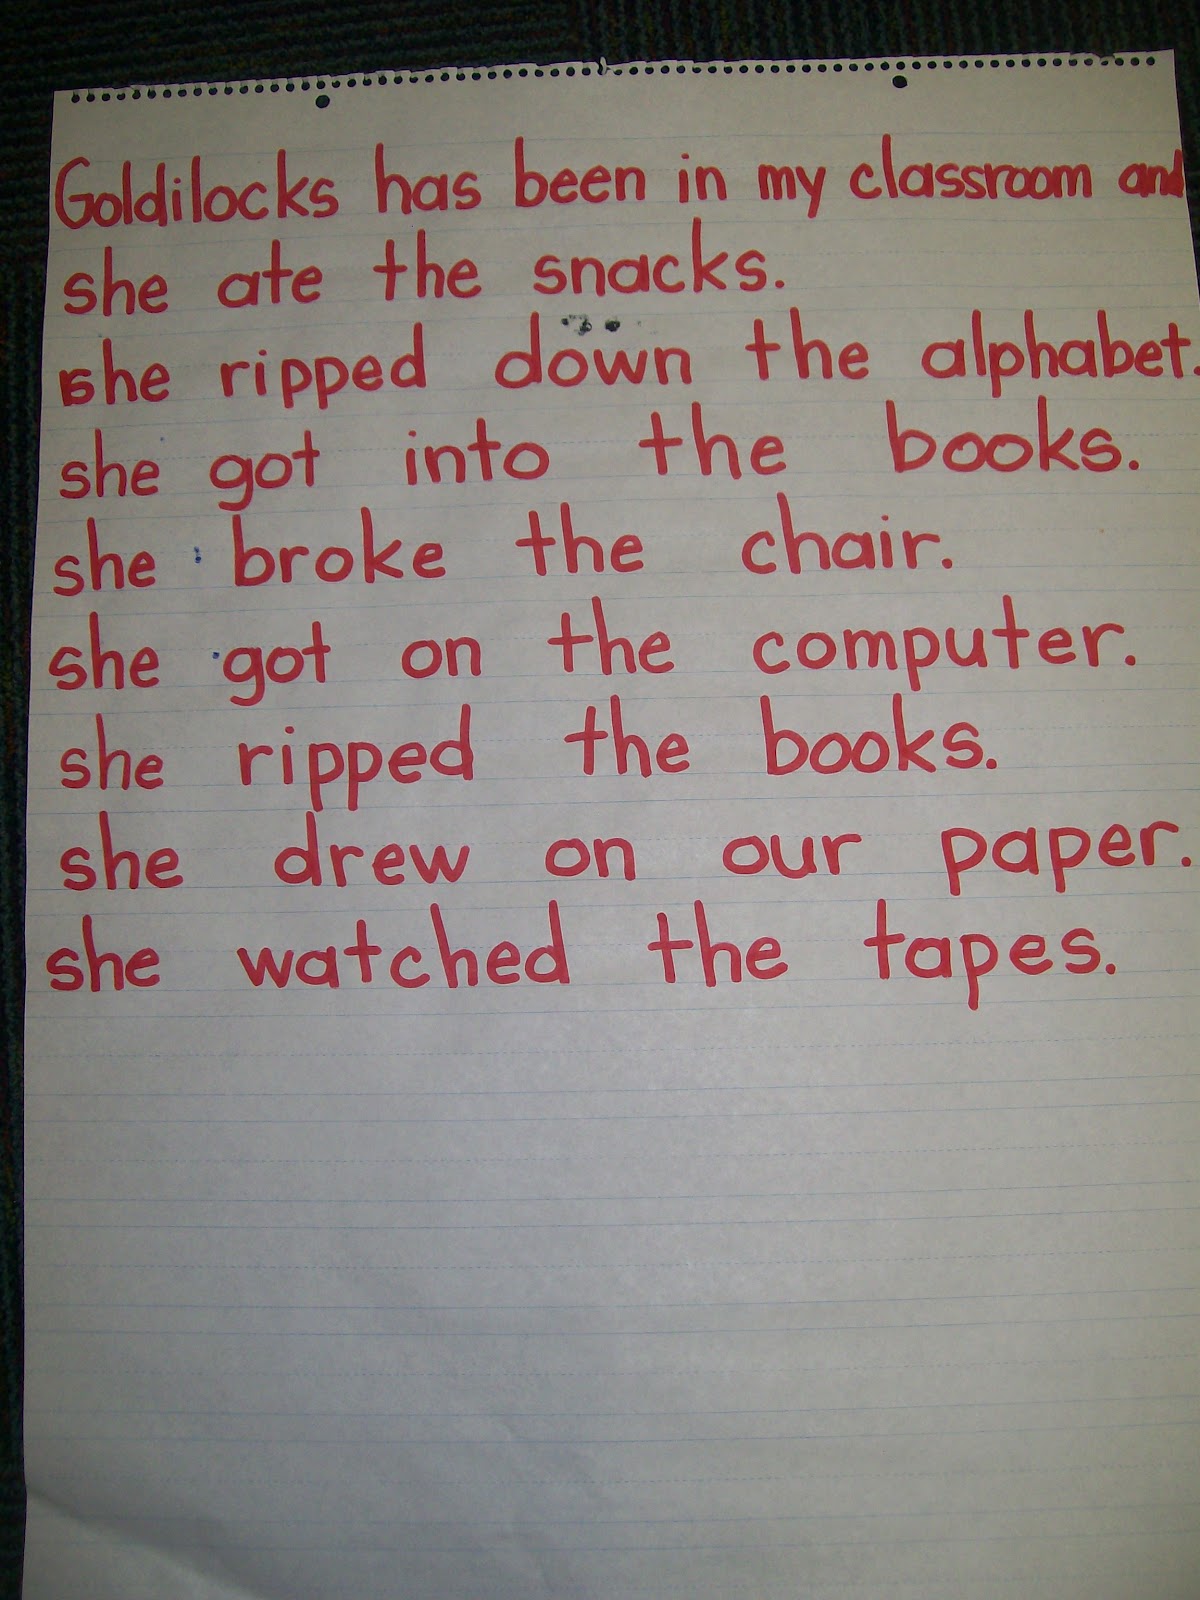 Goldilocks has been in my classroom and
she ate the snacks.
she ripped down the alphabet.
she got into the books.
she broke the chair.
she got on the computer.
she ripped the books.
she drew on our paper.
she watched the tapes.